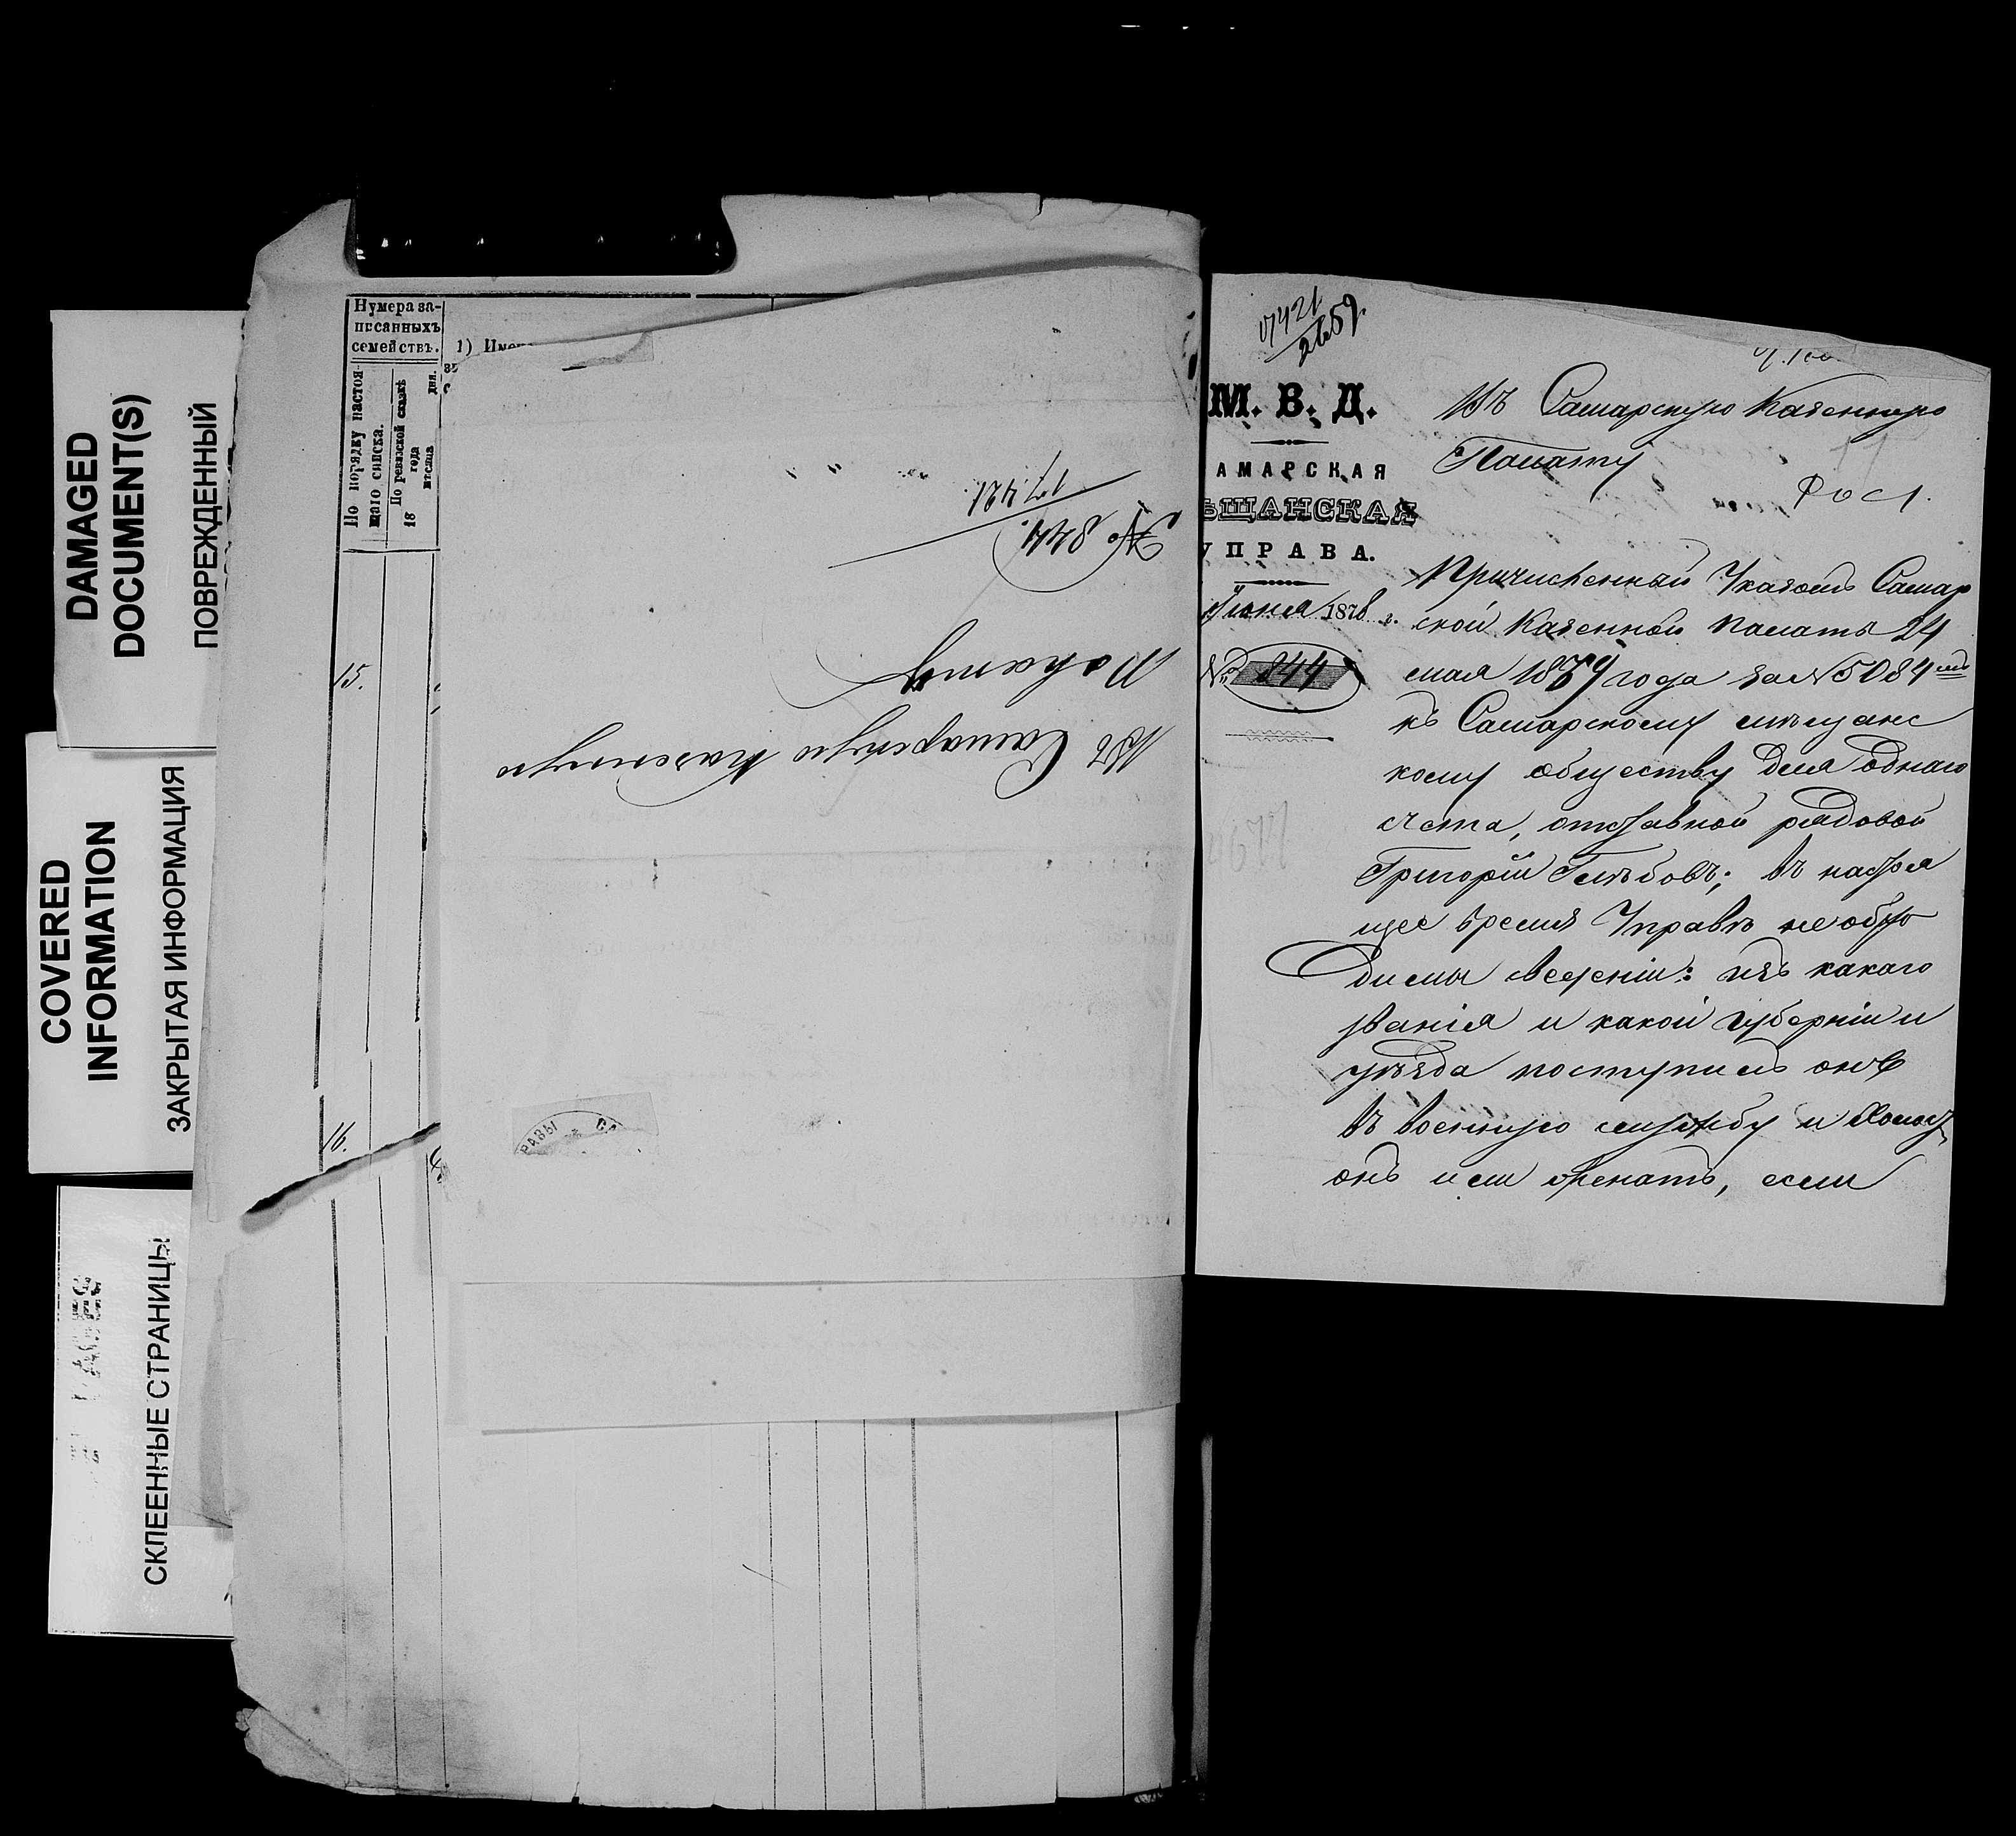 DAMAGED
DOCUMENT(S)
ПОВРЕЖДЕННЫЙ
COVERED
INFORMATION
ЗАКРЫТАЯ ИНФОРМАЦИЯ
СКЛЕЕННЫЕ СТРАНИЦЫ
Нумера за-
писанныхъ
семействъ.
1)
По порядку настоя-
щаго списка.
По ревизской сказкѣ
18 года
мѣсяца
дня.
15.
16.
№ 844
17421
Въ Самарскую Казенную
Палату
РАВЫ
М. В. Д.
АМАРСКАЯ
ѢЩАНСКАЯ
УПРАВА.
Іюня 1878 г.
№ 844
Въ Самарскую Казенную
Палату
Причисленный Указомъ Самар
ской Казенной Палаты 24
мая 1874 года за № 5084
къ Самарскому мѣщанс
кому обществу для однаго
счета, отставной рядовой
Григорій Глѣбовъ; въ настоя
щее время Управѣ необхо
димы сведѣнія: изъ какаго
званія и какой губерніи и
уѣзда поступилъ онъ
въ военную службу и холостъ
онъ или женатъ, если